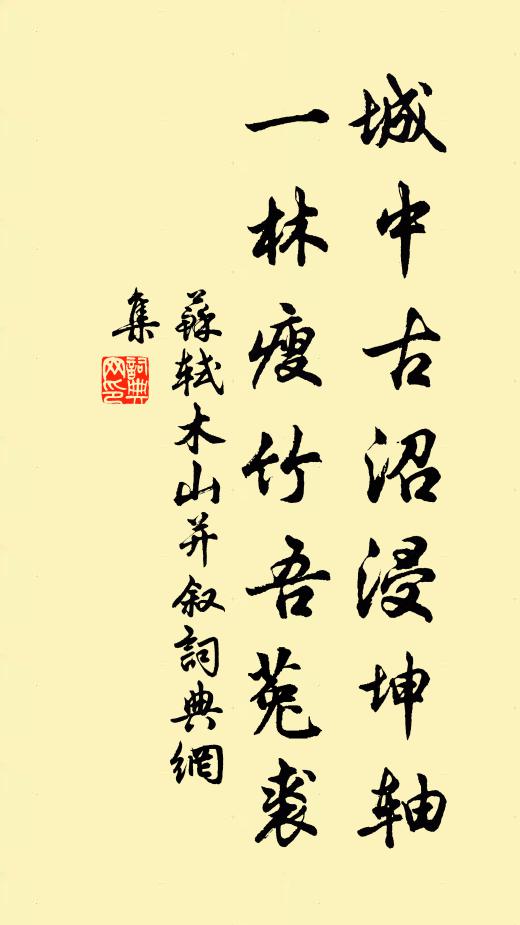 城中古沼浸坤軸
一林瘦竹吾菟裘
蘇軾木山并叙詞典網
集
詞典
网印